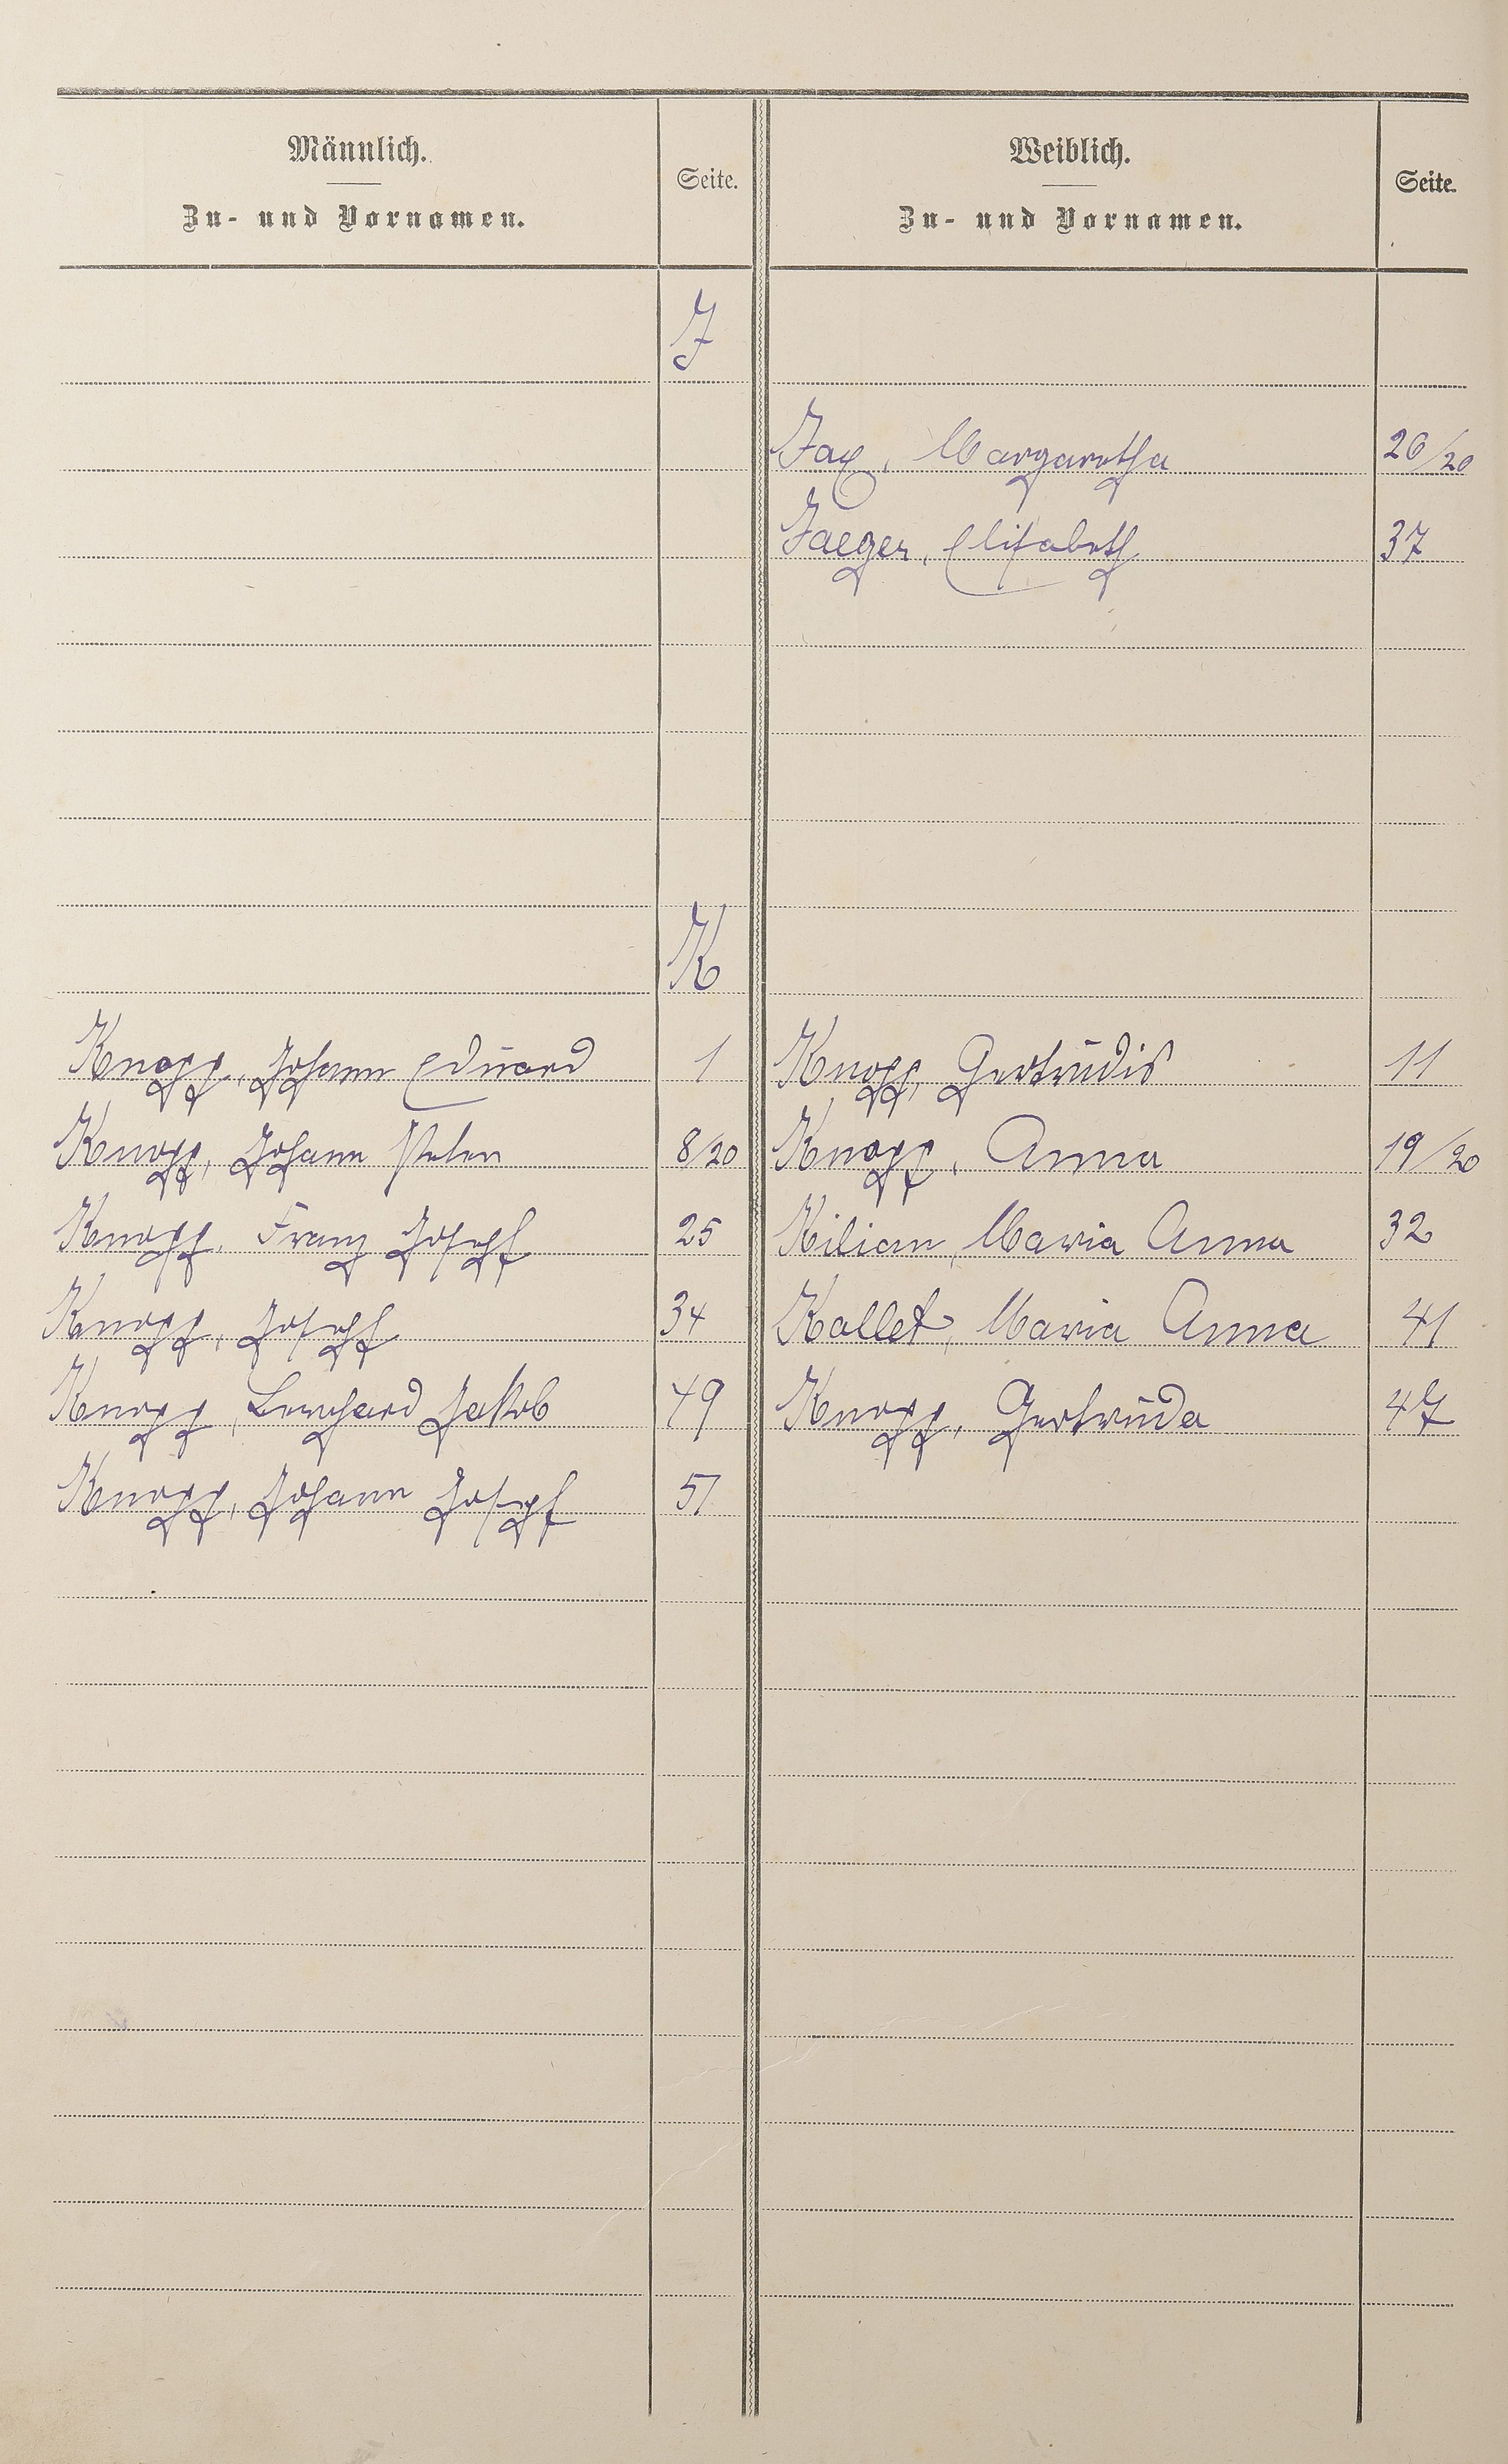 Männlich.
Zu- und Vornamen.
Seite.
Weiblich.
Zu- und Vornamen.
Seite.
J
Jax, Margaretha 20/20
Jaeger, Elisabeth 37
K
Knopp, Johann Eduard 1 Knopp, Gertrudis 11
Knopp, Johann Peter 8/20 Knopp, Anna 19/20
Knopp, Franz Joseph 25 Kilian, Maria Anna 32
Knopp, Joseph 34 Kallet, Maria Anna 41
Knopp, Bernhard Jakob 49 Knopp, Gertruda 47
Knopp, Johann Joseph 51